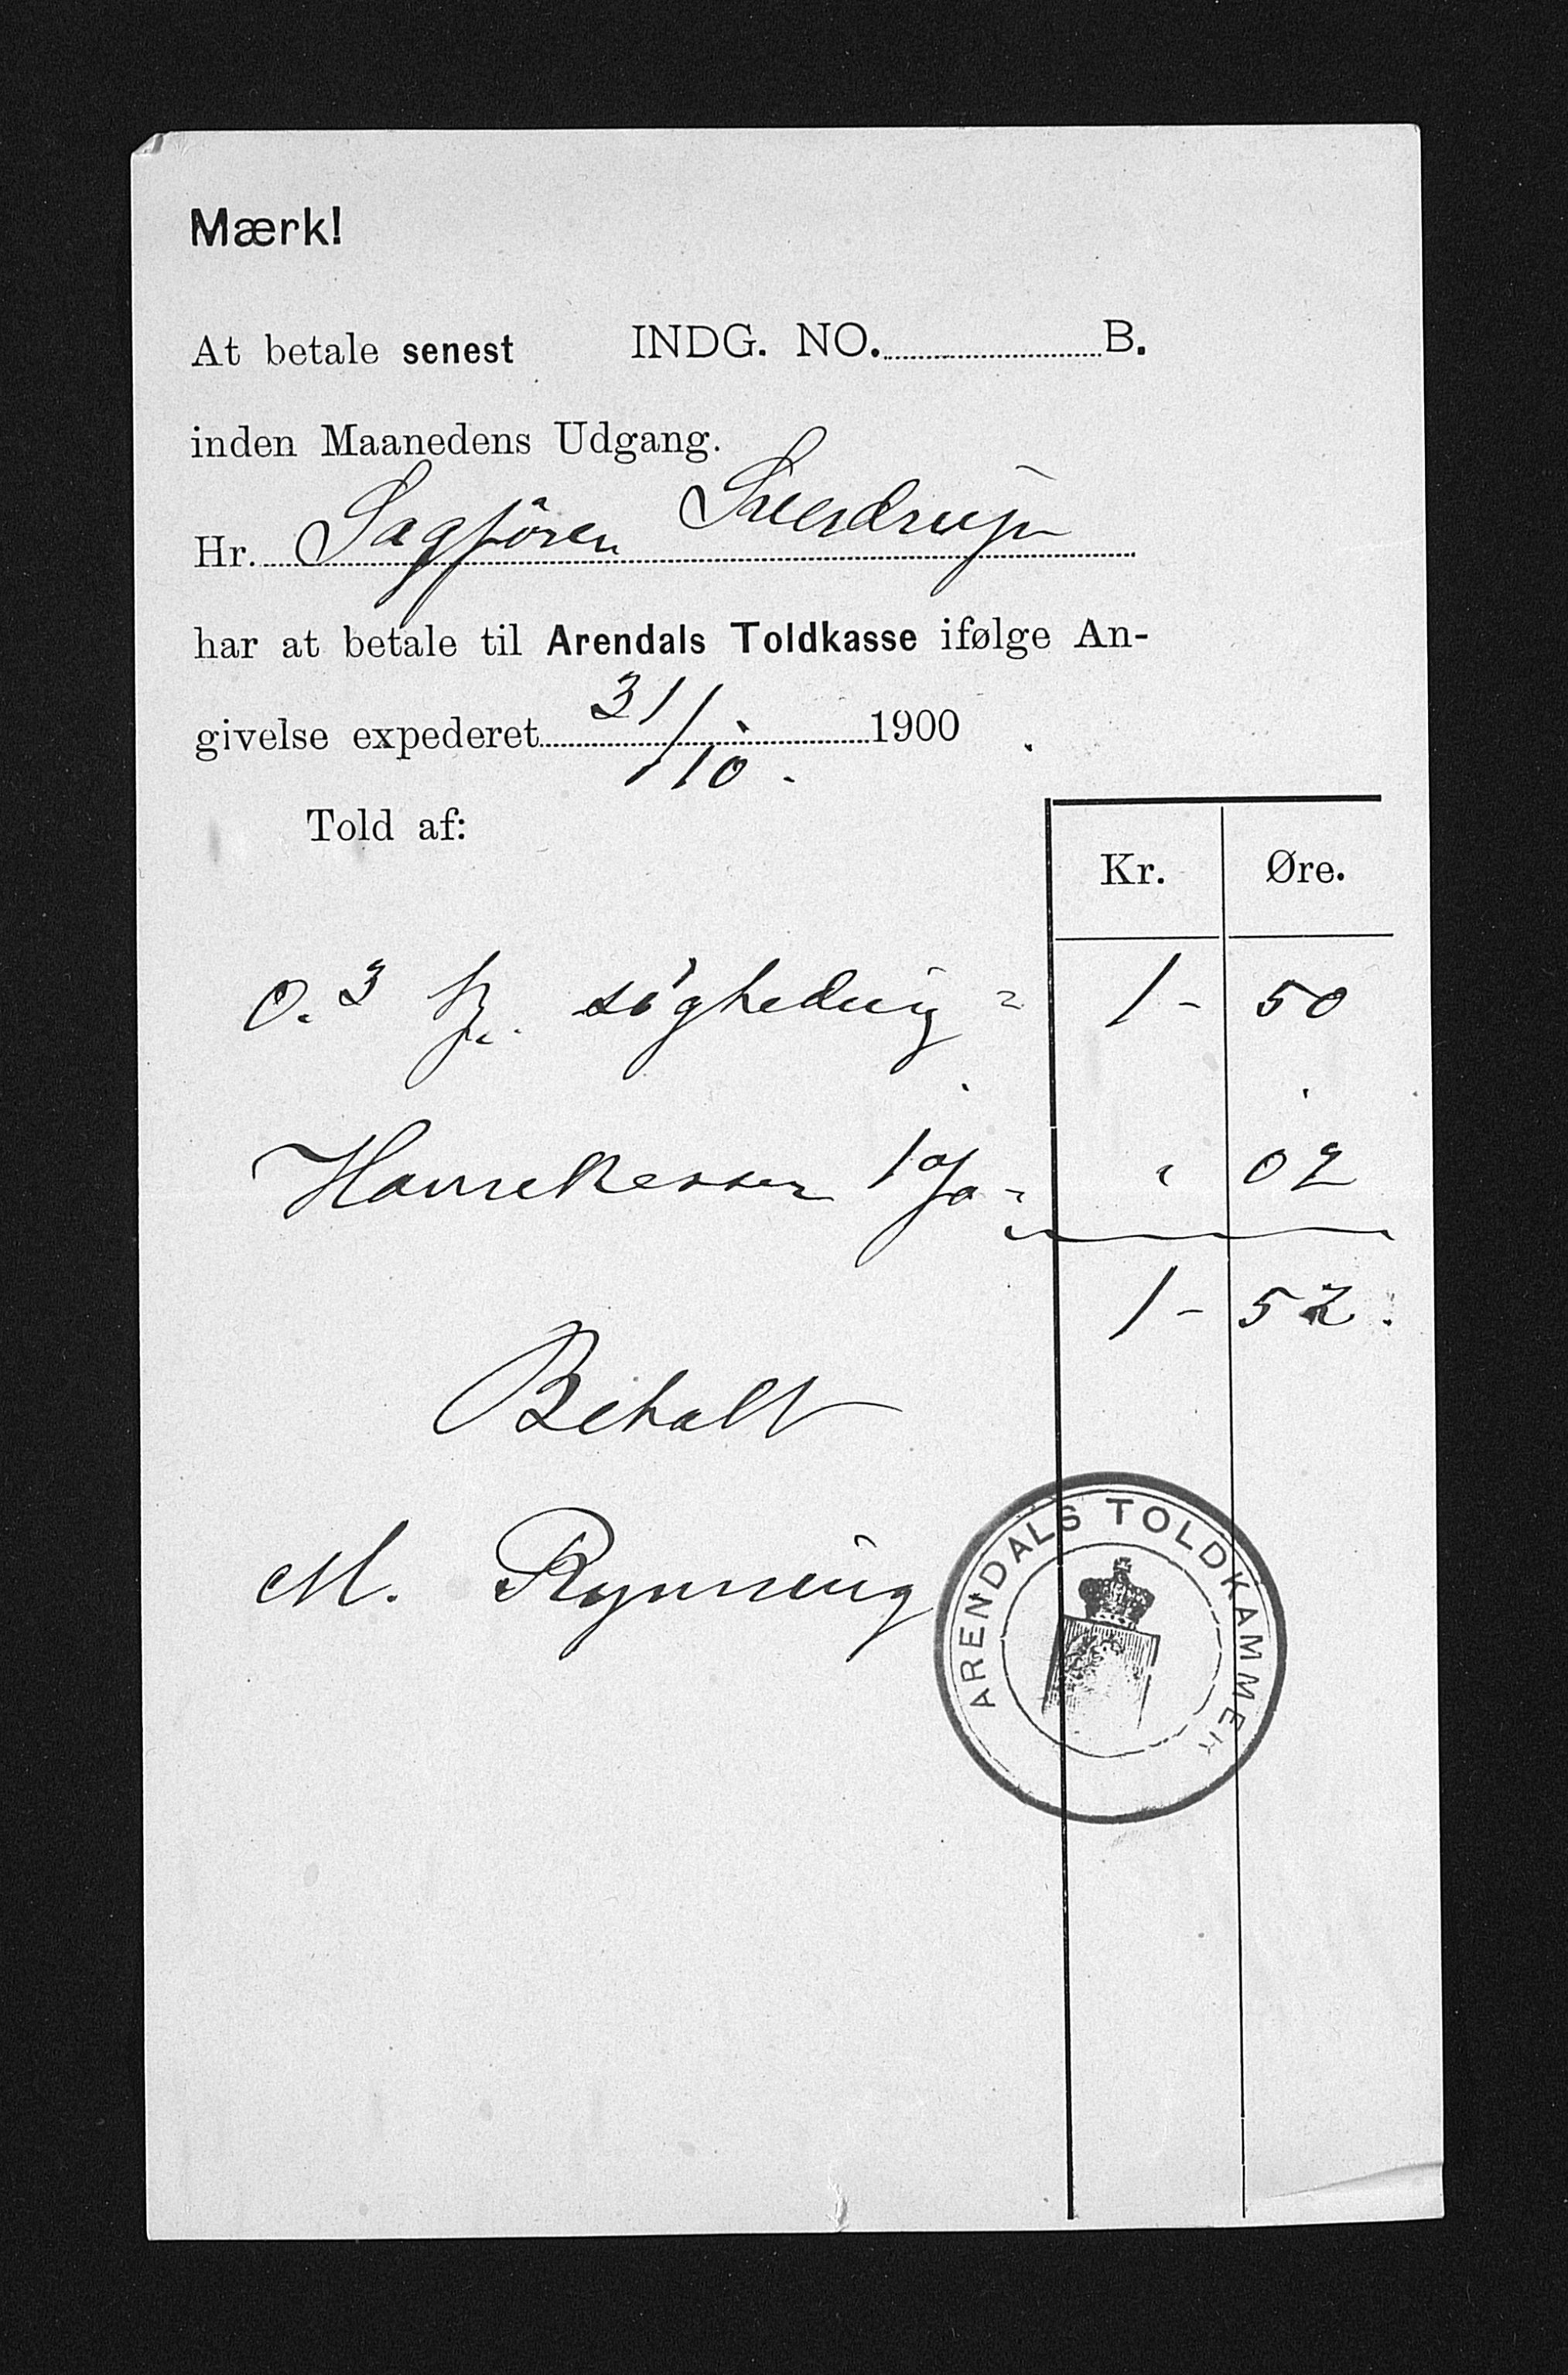 Mærk!
At betale senest INDG. NO. B.
inden Maanedens Udgang.
Hr. Sagfören Sverdrup
har at betale til Arendals Toldkasse ifølge An-
givelse expederet 31/10. 1900
Told af:
Kr. Øre.
0.3 = 1 - 50
Havnekassen 1 % = " 02
1 - 52.
Betalt
M. Rynning
ARENDALS TOLDKAMMER